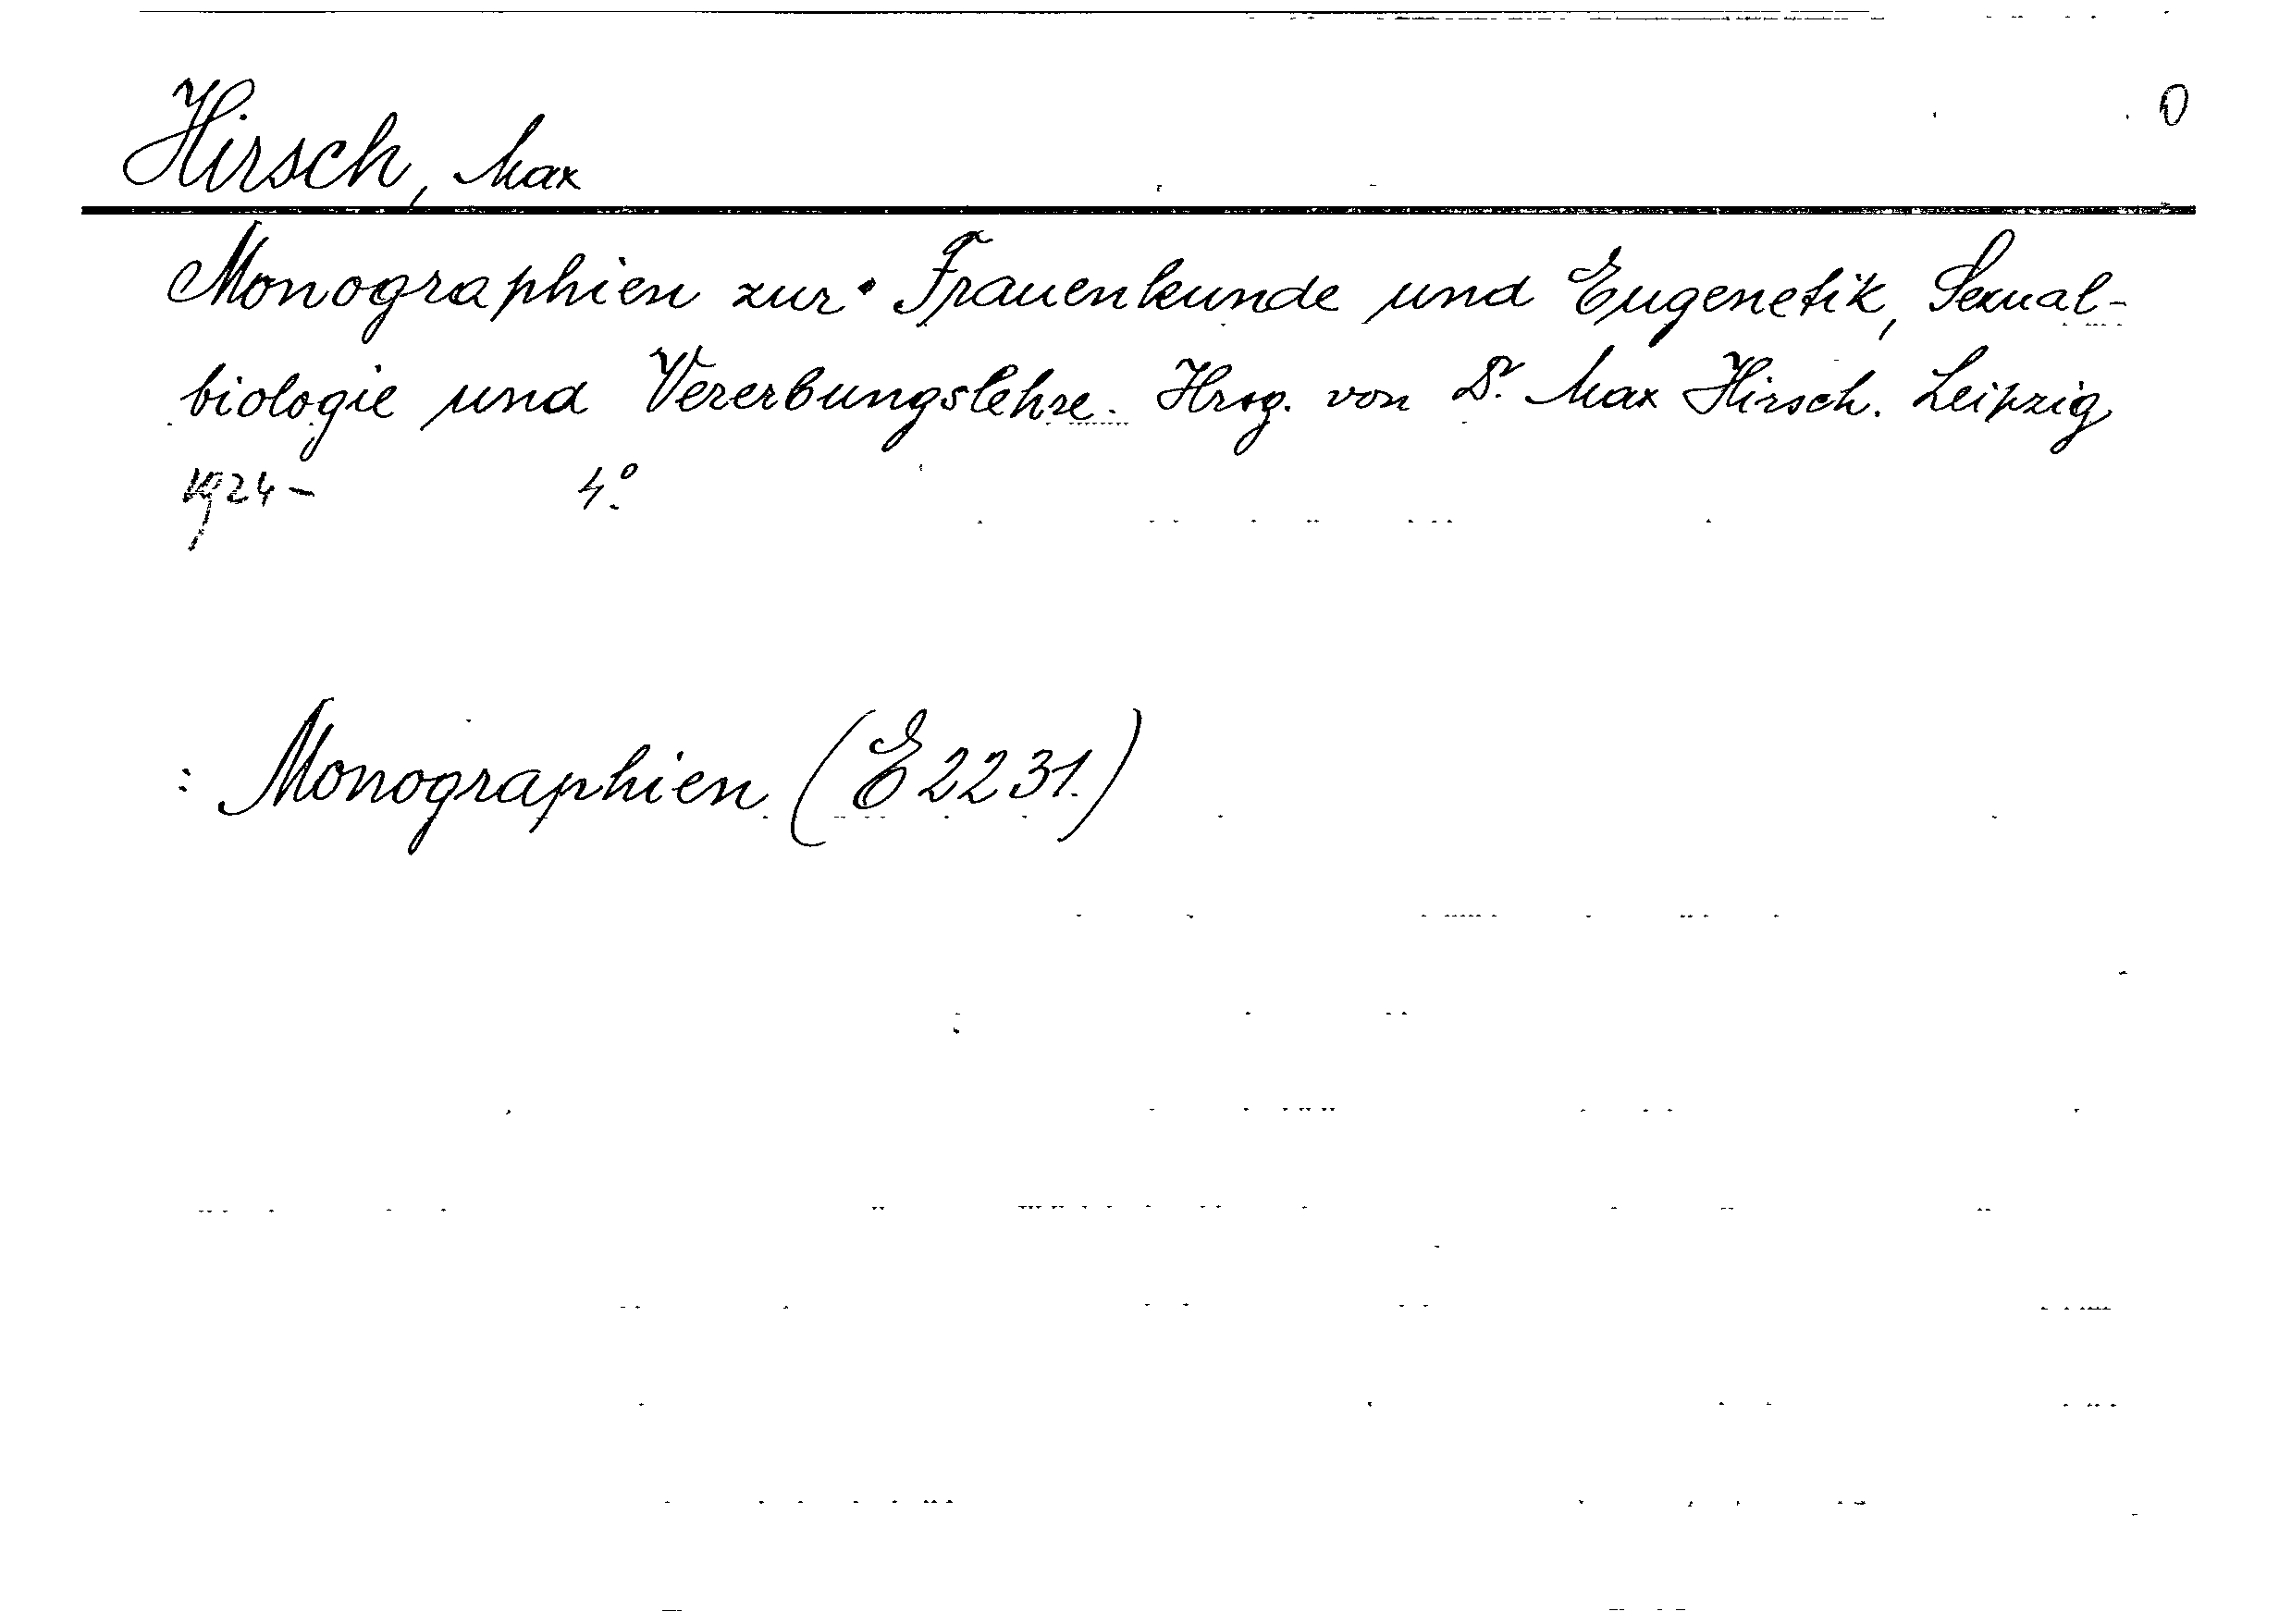 Hirsch, Max
0
Monographien zur Frauenkunde und Eugenetik, Sexual-
biologie und Vererbungslehre. Hrsg. von Dr. Max Hirsch. Leipzig
1924- 4°.
: Monographien (E 2231.)